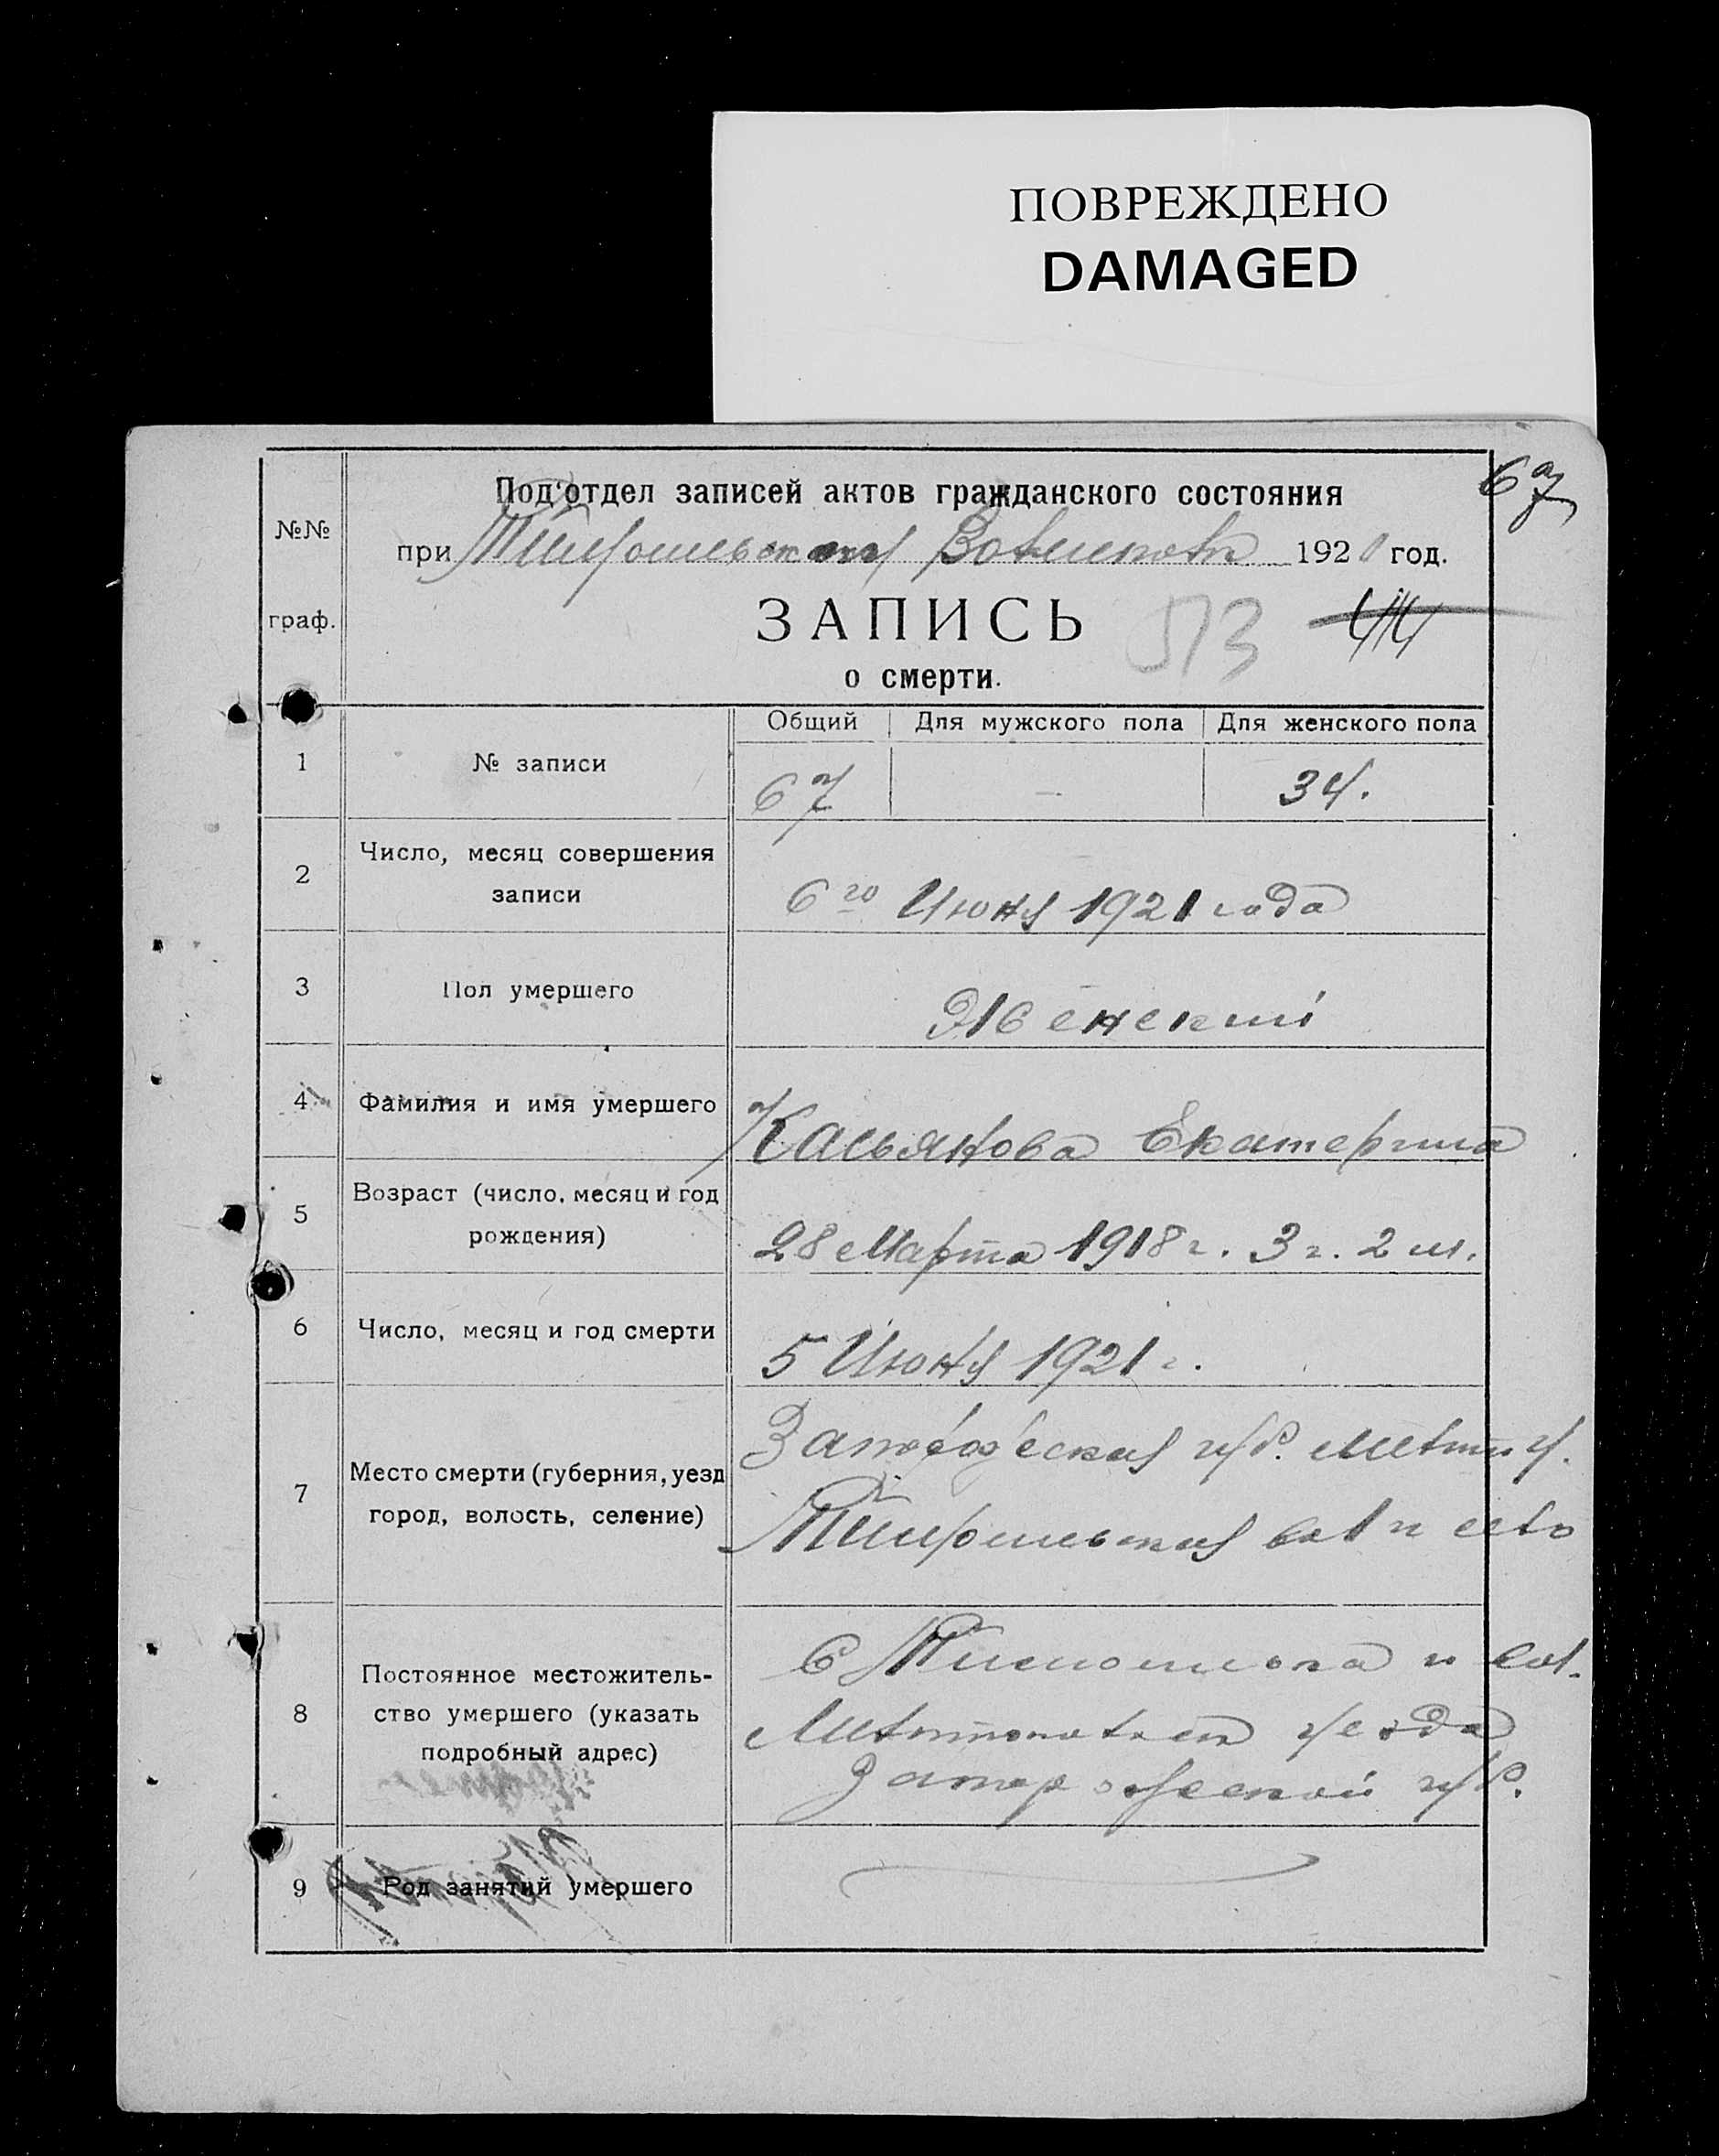 ПОВРЕЖДЕНО
DAMAGED
67
№№
граф.
Под'отдел записей актов гражданского состояния
при 192 год.
ЗАПИСЬ
о смерти.
Общий Для мужского пола Для женского пола
1 № записи 67 — 34.
2 Число, месяц совершения
записи
6го Июня 1921 года
3 Пол умершего Женский
4 Фамилия и имя умершего Касьянова Екатерина
5 Возраст (число, месяц и год
рождения)
28 Марта 1918 г. 3 г. 2 м.
6 Число, месяц и год смерти 5 Июня 1921 г.
7 Место смерти (губерния, уезд
город, волость, селение)
вол и село
8 Постоянное местожитель-
ство умершего (указать
подробный адрес)
С и вол.
уезда
Запорожской губ.
9 Род занятий умершего